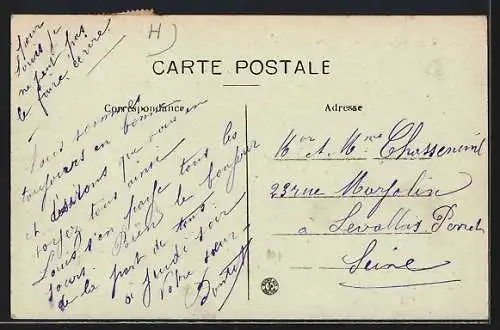 pour
Louis je
ne peut pas
le faire écrire
H)
CARTE POSTALE
Correspondance
Adresse
Nous sommes
toujours en bonne
et désirons que vous en
soyez tous ainsi
Louis s'en passe tous les
jours. Bien le bonjour
de la part de tous.
à jeudi soir
Votre sœur
Mr et Mme Chasseneuil
23 rue Marjolin
a Levallois Perret
Seine